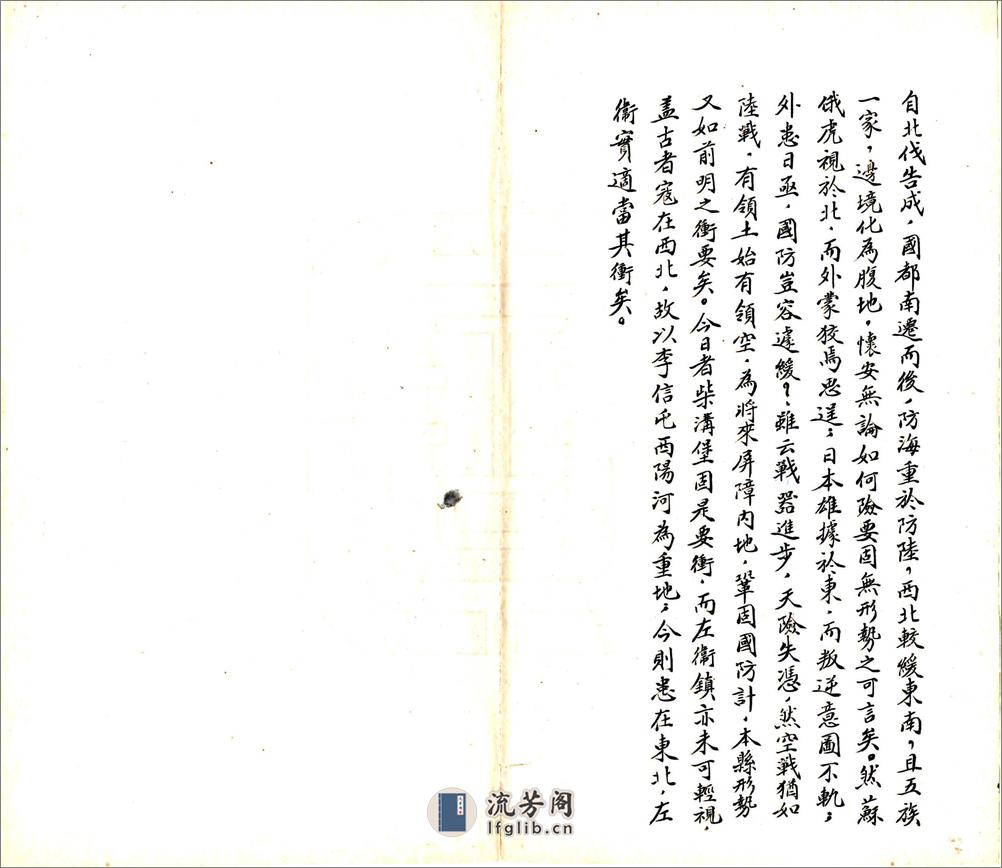 自北伐告成，國都南遷而後，防海重於防陸，西北較緩東南，且五族
一家，邊境化為腹地，懷安無論如何險要固無形勢之可言矣。然蘇
俄虎視於北，而外蒙狡焉思逞；日本雄據於東，而叛逆意圖不軌；
外患日亟，國防豈容遽緩？雖云戰器進步，天險失憑，然空戰猶如
陸戰，有領土始有領空，為將來屏障內地，鞏固國防計，本縣形勢
又如前明之衝要矣。今日者柴溝堡固是要衝，而左衛鎮亦未可輕視，
蓋古者寇在西北，故以李信屯西陽河為重地，今則患在東北，左
衛實適當其衝矣。
流芳阁
lfglib.cn